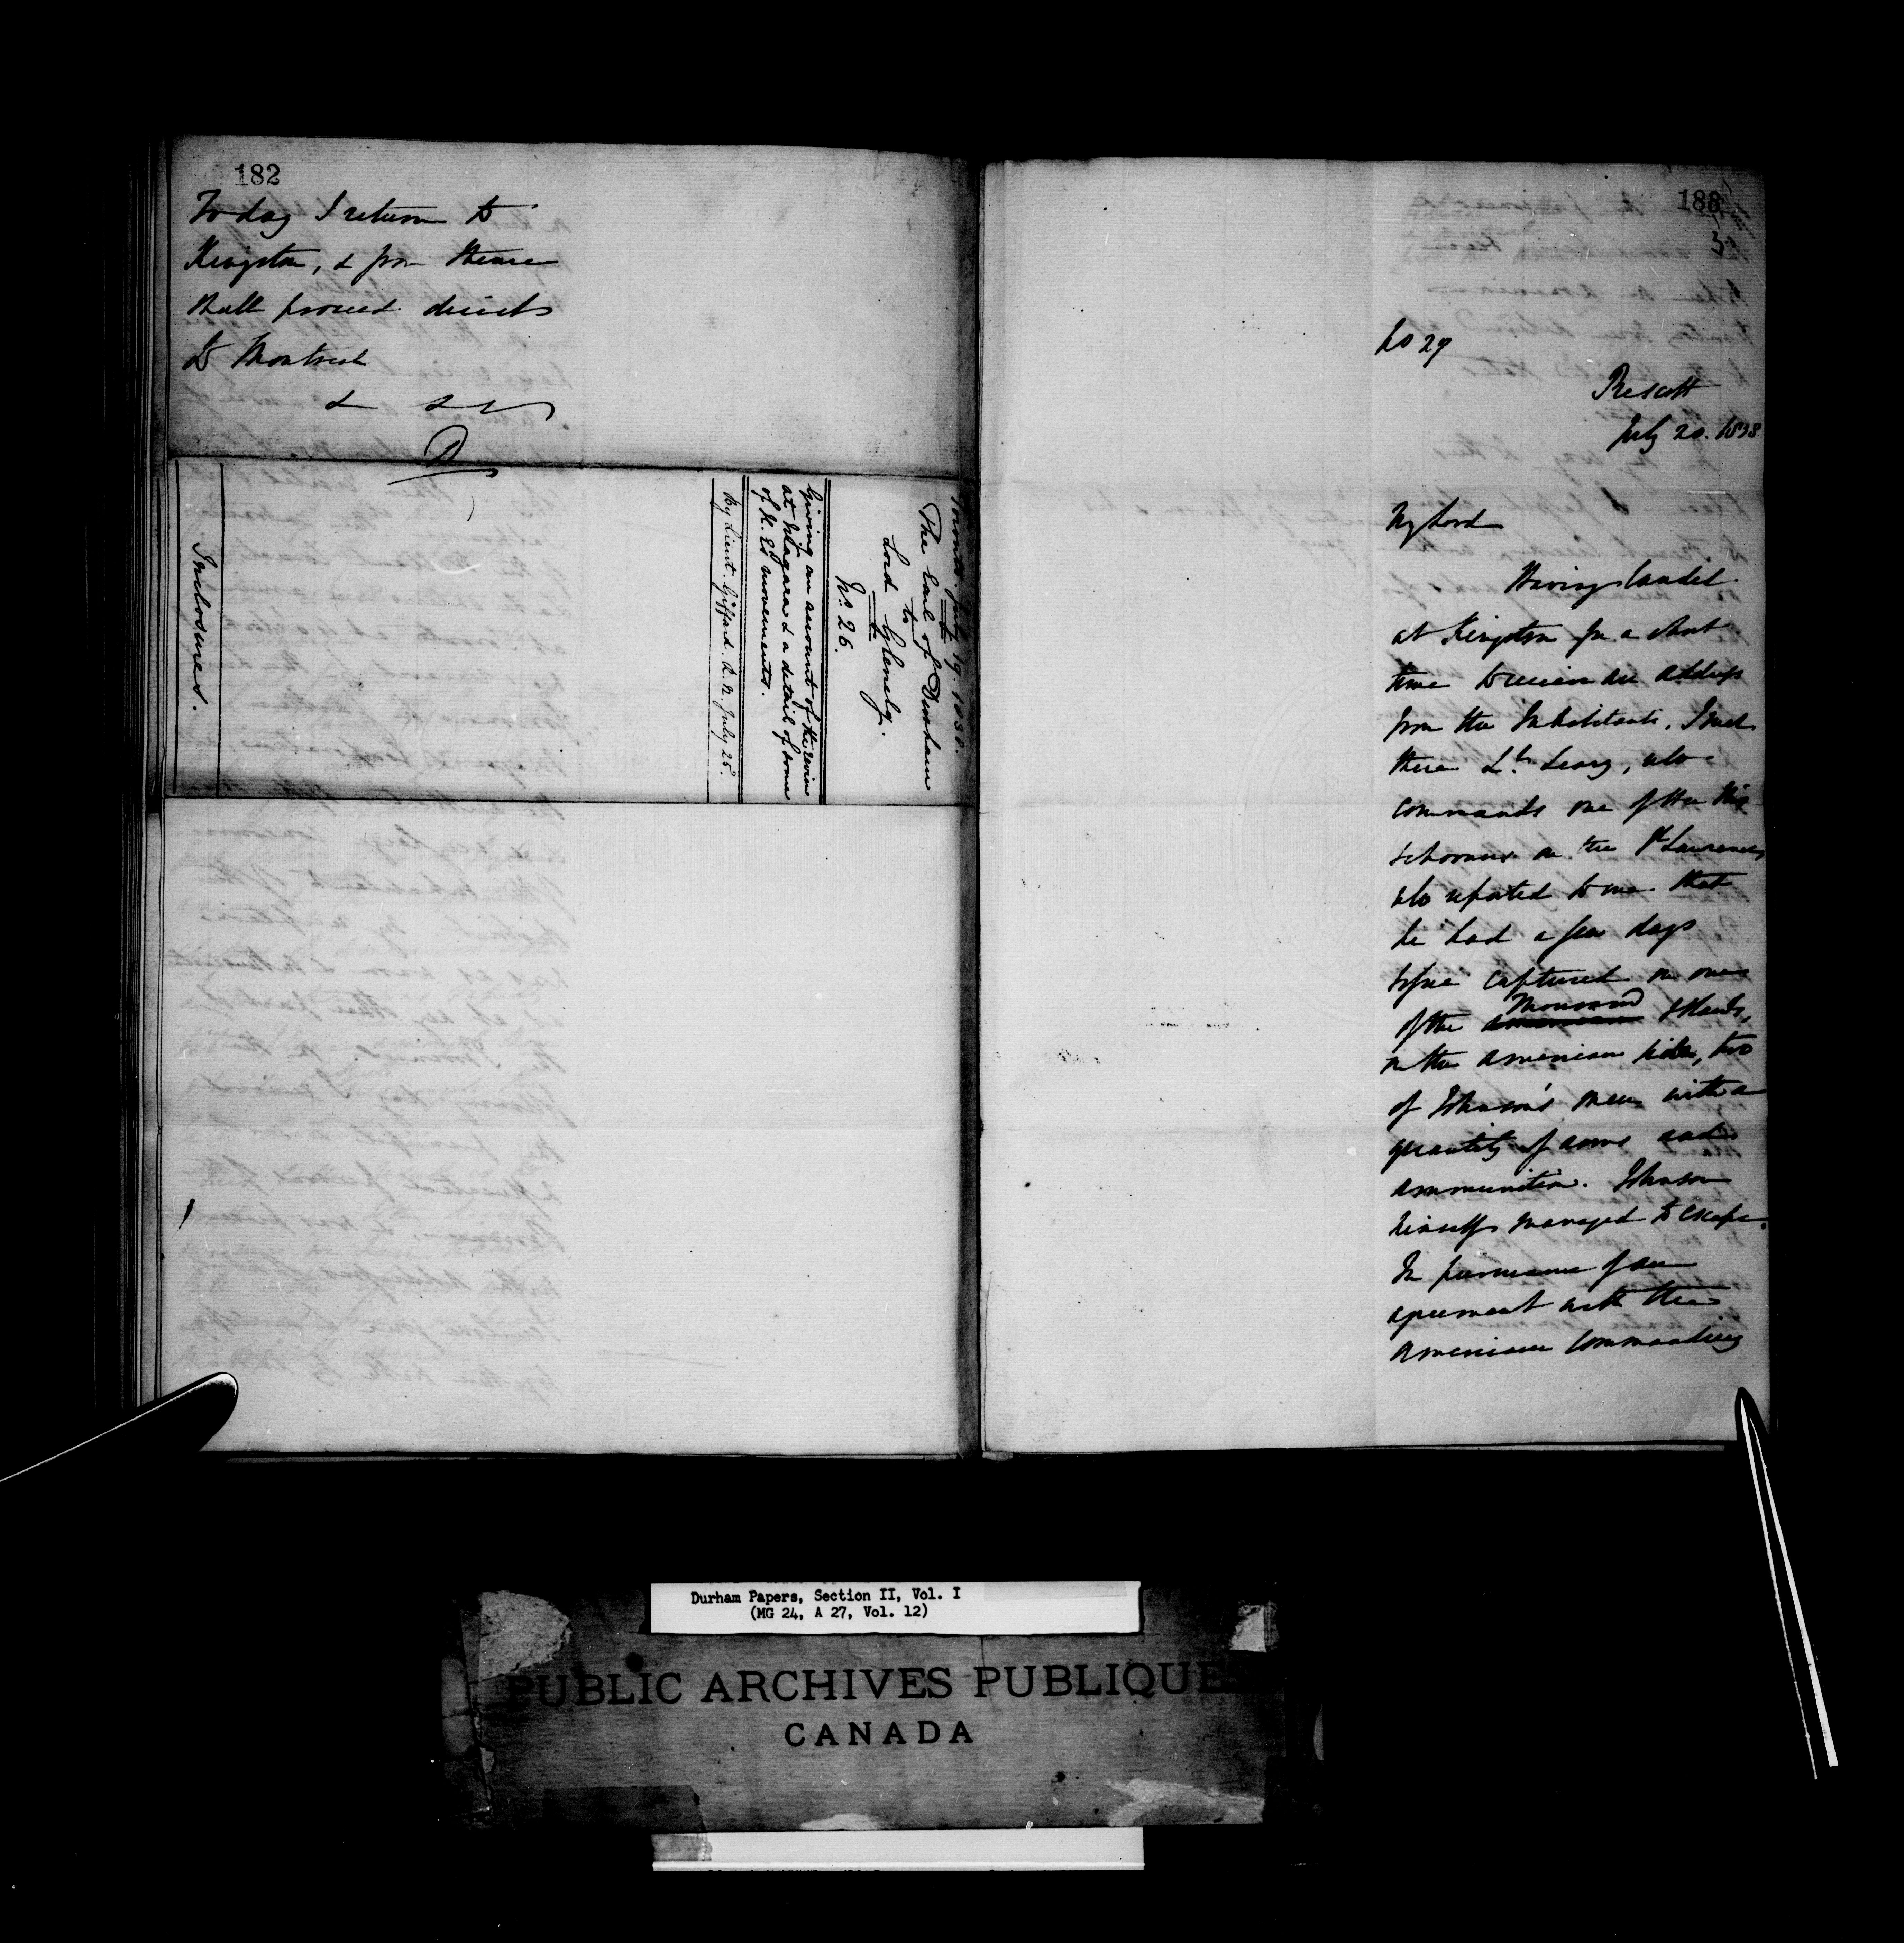 182
To day I return to
Kingston, & from thence
shall proceed direct
to Montreal
& &c
D
Toronto. July 19. 1838.
The Earl of Durham
to
Lord Glenelg.
No. 26.
Giving an account of the review
at Niagara & a detail of some
of H. Es movements.
By Lieut. Giffard. R. N. July 25.
Inclosures.
183
3
No 27
Prescott
July 20. 1838
My Lord
Having landed
at Kingston for a short
time to receive an address
from the Inhabitants, I met
there Lt. Leary, who
commands one of the
schooners on the St Lawrence,
who reported to me that
he had a few days
before captured on one
of the American Thousand Islands,
on the American side, two
of Johnson's men with a
quantity of arms and
ammunition. Johnson
himself managed to escape.
In pursuance of an
agreement with the
American Commanding
Durham Papers, Section II, Vol. I
(MG 24, A 27, Vol. 12)
PUBLIC ARCHIVES PUBLIQUE
CANADA